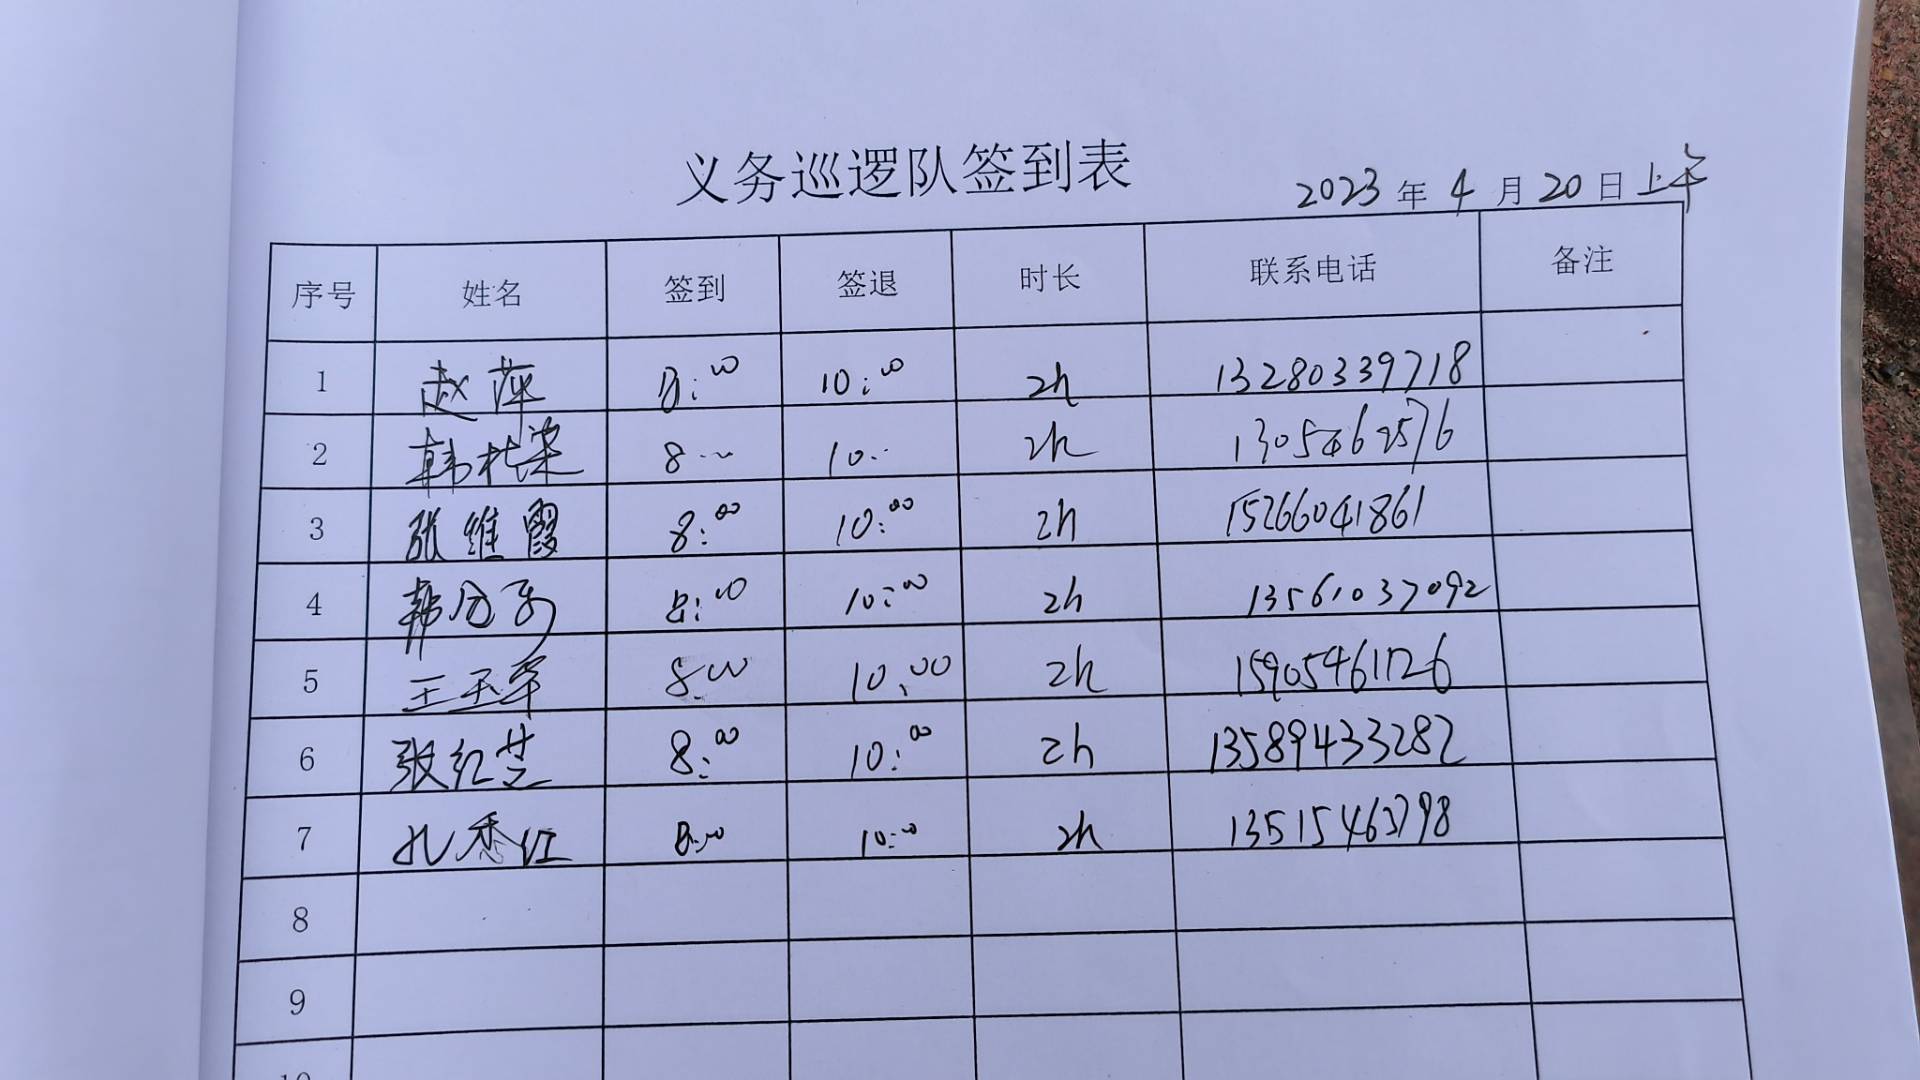 义务巡逻队签到表
2023年4月20日上午
序号 姓名 签到 签退 时长 联系电话 备注
1 赵萍 8:00 10:00 2h 13280339718
2 韩 8 10 2h
3 张维霞 8:00 10:00 2h 15266041861
4 韩 8:00 10:00 2h 13561037092
5 王玉军 8:00 10:00 2h 15905461126
6 张红芝 8:00 10:00 2h 13589433282
7 孔香红 8:00 10:00 2h 13515463798
8
9
10